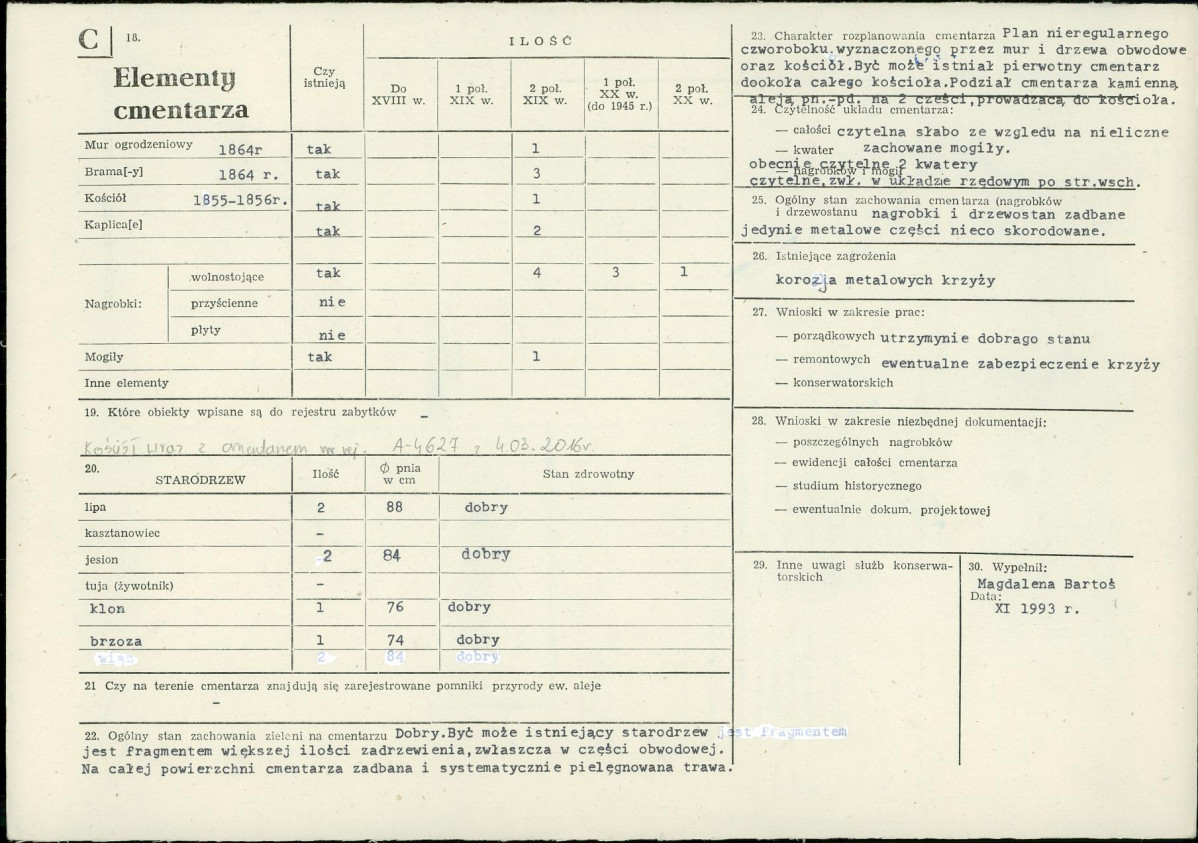 C 18.
Elementy
cmentarza
Czy
istnieją
ILOŚĆ
Do
XVIII w.
1 poł.
XIX w.
2 poł.
XIX w.
1 poł.
XX w.
(do 1945 r.)
2 poł.
XX w.
Mur ogrodzeniowy 1864r tak 1
Brama[-y] 1864 r. tak 3
Kościół 1855-1856r. tak 1
Kaplica[e] tak 2
Nagrobki:
wolnostojące tak 4 3 1
przyścienne nie
płyty nie
Mogiły tak 1
Inne elementy
19. Które obiekty wpisane są do rejestru zabytków –
Kościół wraz z cmentarzem nr rej. A-4627 z 4.03.2016r.
20.
STARODRZEW
Ilość
Ø pnia
w cm
Stan zdrowotny
lipa 2 88 dobry
kasztanowiec –
jesion 2 84 dobry
tuja (żywotnik) –
klon 1 76 dobry
brzoza 1 74 dobry
wiąz 2 84 dobry
21 Czy na terenie cmentarza znajdują się zarejestrowane pomniki przyrody ew. aleje
–
22. Ogólny stan zachowania zieleni na cmentarzu Dobry.Być może istniejący starodrzew jest fragmentem
jest fragmentem większej ilości zadrzewienia,zwłaszcza w części obwodowej.
Na całej powierzchni cmentarza zadbana i systematycznie pielęgnowana trawa.
23. Charakter rozplanowania cmentarza Plan nieregularnego
czworoboku.wyznaczonego przez mur i drzewa obwodowe
oraz kościół.Być może istniał pierwotny cmentarz
dookoła całego kościoła.Podział cmentarza kamienną
aleją pn.-pd. na 2 części,prowadzącą do kościoła.
24. Czytelność układu cmentarza:
— całości czytelna słabo ze względu na nieliczne
— kwater zachowane mogiły.
obecnie czytelne 2 kwatery
— nagrobków i mogił
czytelne,zwł. w układzie rzędowym po str.wsch.
25. Ogólny stan zachowania cmentarza (nagrobków
i drzewostanu nagrobki i drzewostan zadbane
jedynie metalowe części nieco skorodowane.
26. Istniejące zagrożenia
korozja metalowych krzyży
27. Wnioski w zakresie prac:
— porządkowych utrzymynie dobrago stanu
— remontowych ewentualne zabezpieczenie krzyży
— konserwatorskich
28. Wnioski w zakresie niezbędnej dokumentacji:
— poszczególnych nagrobków
— ewidencji całości cmentarza
— studium historycznego
— ewentualnie dokum. projektowej
29. Inne uwagi służb konserwa-
torskich
30. Wypełnił:
Magdalena Bartoś
Data:
XI 1993 r.